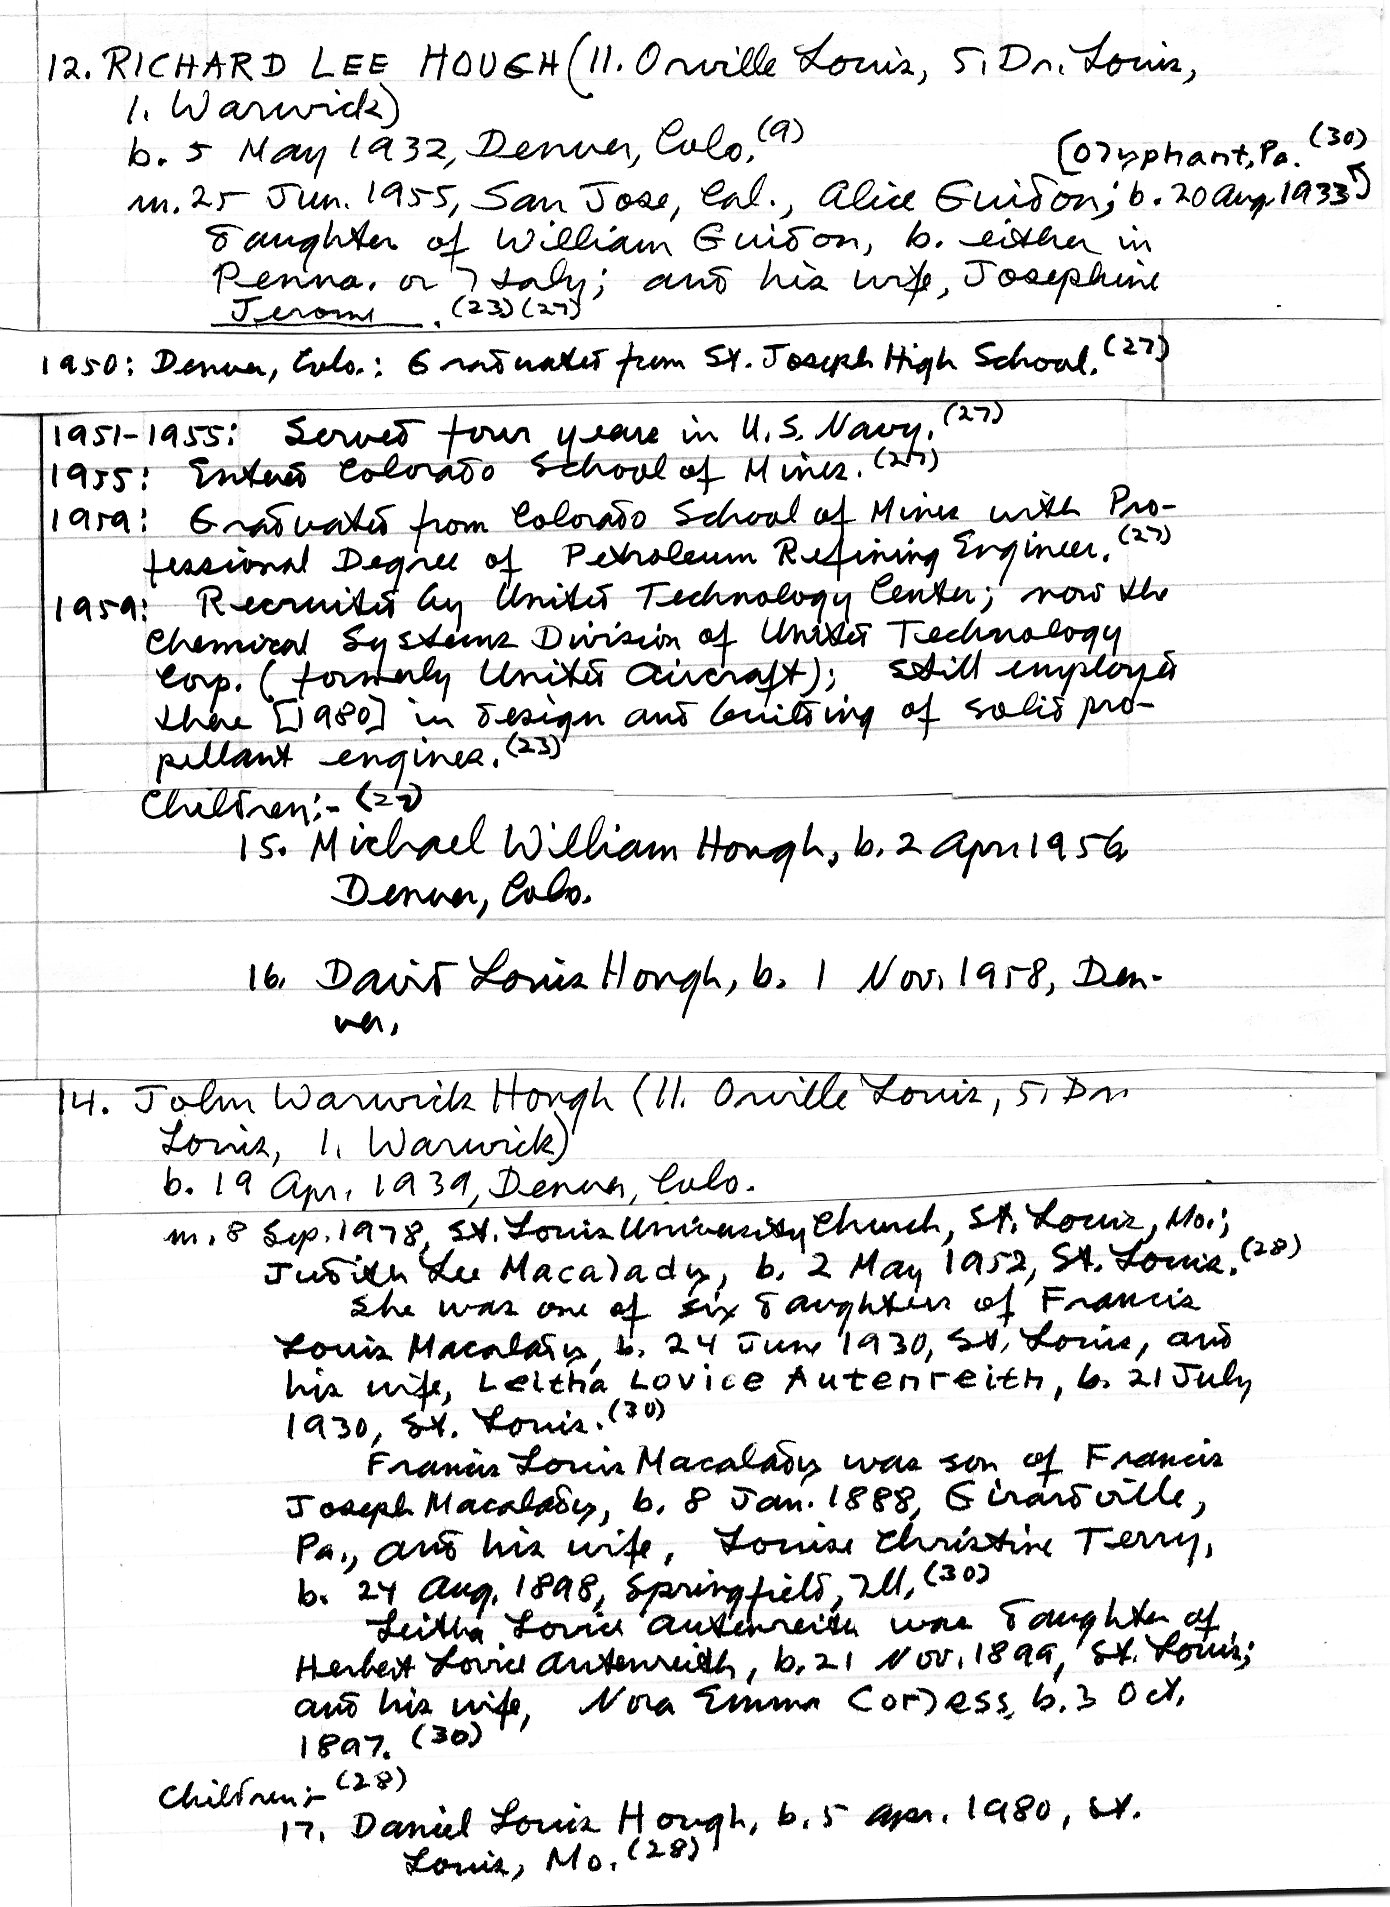 12. RICHARD LEE HOUGH (11. Orville Louis, 5. Dr. Louis,
1. Warwick)
b. 5 May 1932, Denver, Colo. (9)
[Olyphant, Pa. (30)
m. 25 Jun. 1955, San Jose, Cal., Alice Guidon; b. 20 Aug. 1933
daughter of William Guidon, b. either in
Penna. or Italy; and his wife, Josephine
Jerome. (23) (27)
1950: Denver, Colo.: Graduated from St. Joseph High School. (27)
1951-1955: Served four years in U.S. Navy. (27)
1955: Entered Colorado School of Mines. (27)
1959: Graduated from Colorado School of Mines with Pro-
fessional Degree of Petroleum Refining Engineer. (27)
1959: Recruited by United Technology Center; now the
Chemical Systems Division of United Technology
Corp. (formerly United Aircraft); still employed
there [1980] in design and building of solid pro-
pellant engines. (23)
Children:- (27)
15. Michael William Hough, b. 2 Apr. 1956
Denver, Colo.
16. David Louis Hough, b. 1 Nov. 1958, Den-
ver.
14. John Warwick Hough (11. Orville Louis, 5. Dr.
Louis, 1. Warwick)
b. 19 Apr. 1939, Denver, Colo.
m. 8 Sep. 1978, St. Louis University Church, St. Louis, Mo.;
Judith Lee Macalady, b. 2 May 1952, St. Louis. (28)
She was one of six daughters of Francis
Louis Macalady, b. 24 June 1930, St. Louis, and
his wife, Leitha Lovice Autenreith, b. 21 July
1930, St. Louis. (30)
Francis Louis Macalady was son of Francis
Joseph Macalady, b. 8 Jan. 1888, Girardville,
Pa., and his wife, Louise Christine Terry,
b. 24 Aug. 1898, Springfield, Ill. (30)
Leitha Lovice Autenreith was daughter of
Herbert Lovice Autenreith, b. 21 Nov. 1899, St. Louis;
and his wife, Nora Emma Corless, b. 3 Oct.
1897. (30)
Children:- (28)
17. Daniel Louis Hough, b. 5 Apr. 1980, St.
Louis, Mo. (28)